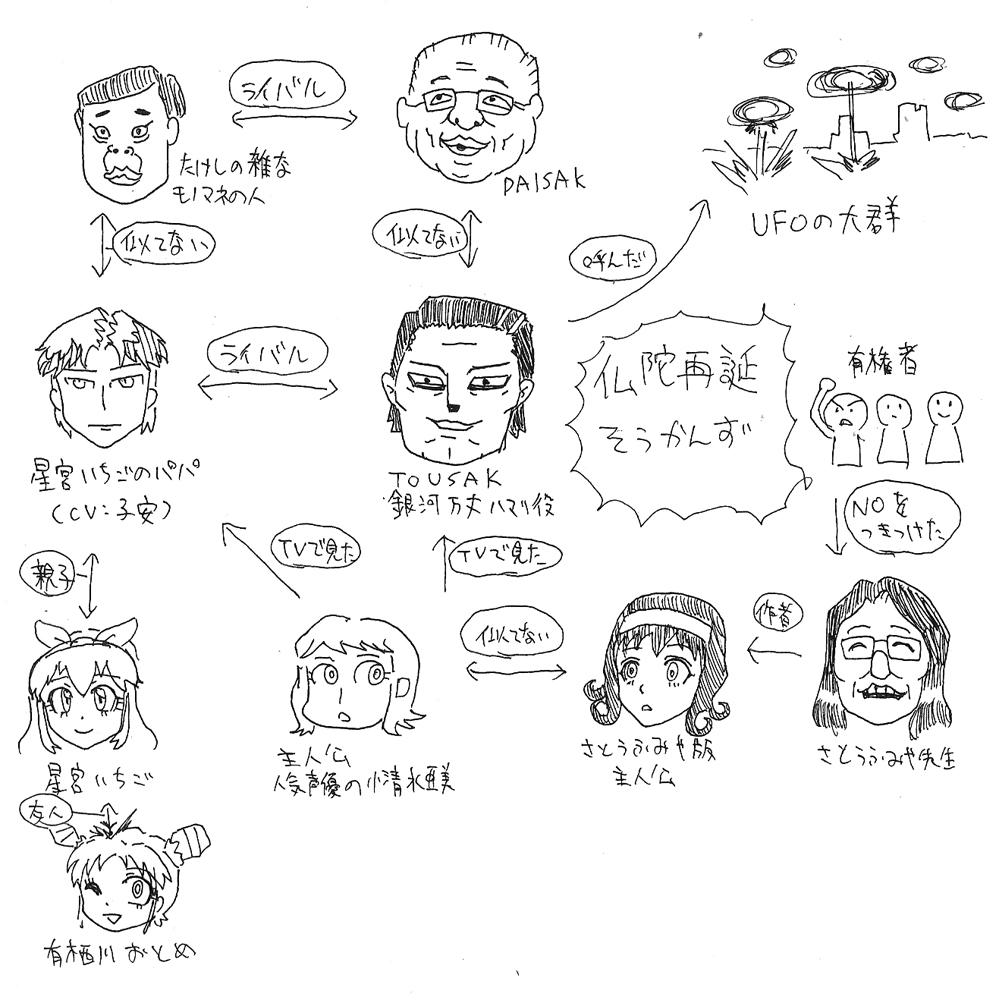 ライバル
たけしの雑な
モノマネの人
DAISAK
UFOの大群
似てない
似てない
呼んだ
ライバル
仏陀再誕
そうかんず
有権者
星宮いちごのパパ
(CV:子安)
TOUSAK
銀河万丈ハマリ役
NOを
つきつけた
親子
TVで見た
TVで見た
似てない
作者
星宮いちご
主人公
人気声優の小清水亜美
さとうふみや版
主人公
さとうふみや先生
友人
有栖川おとめ